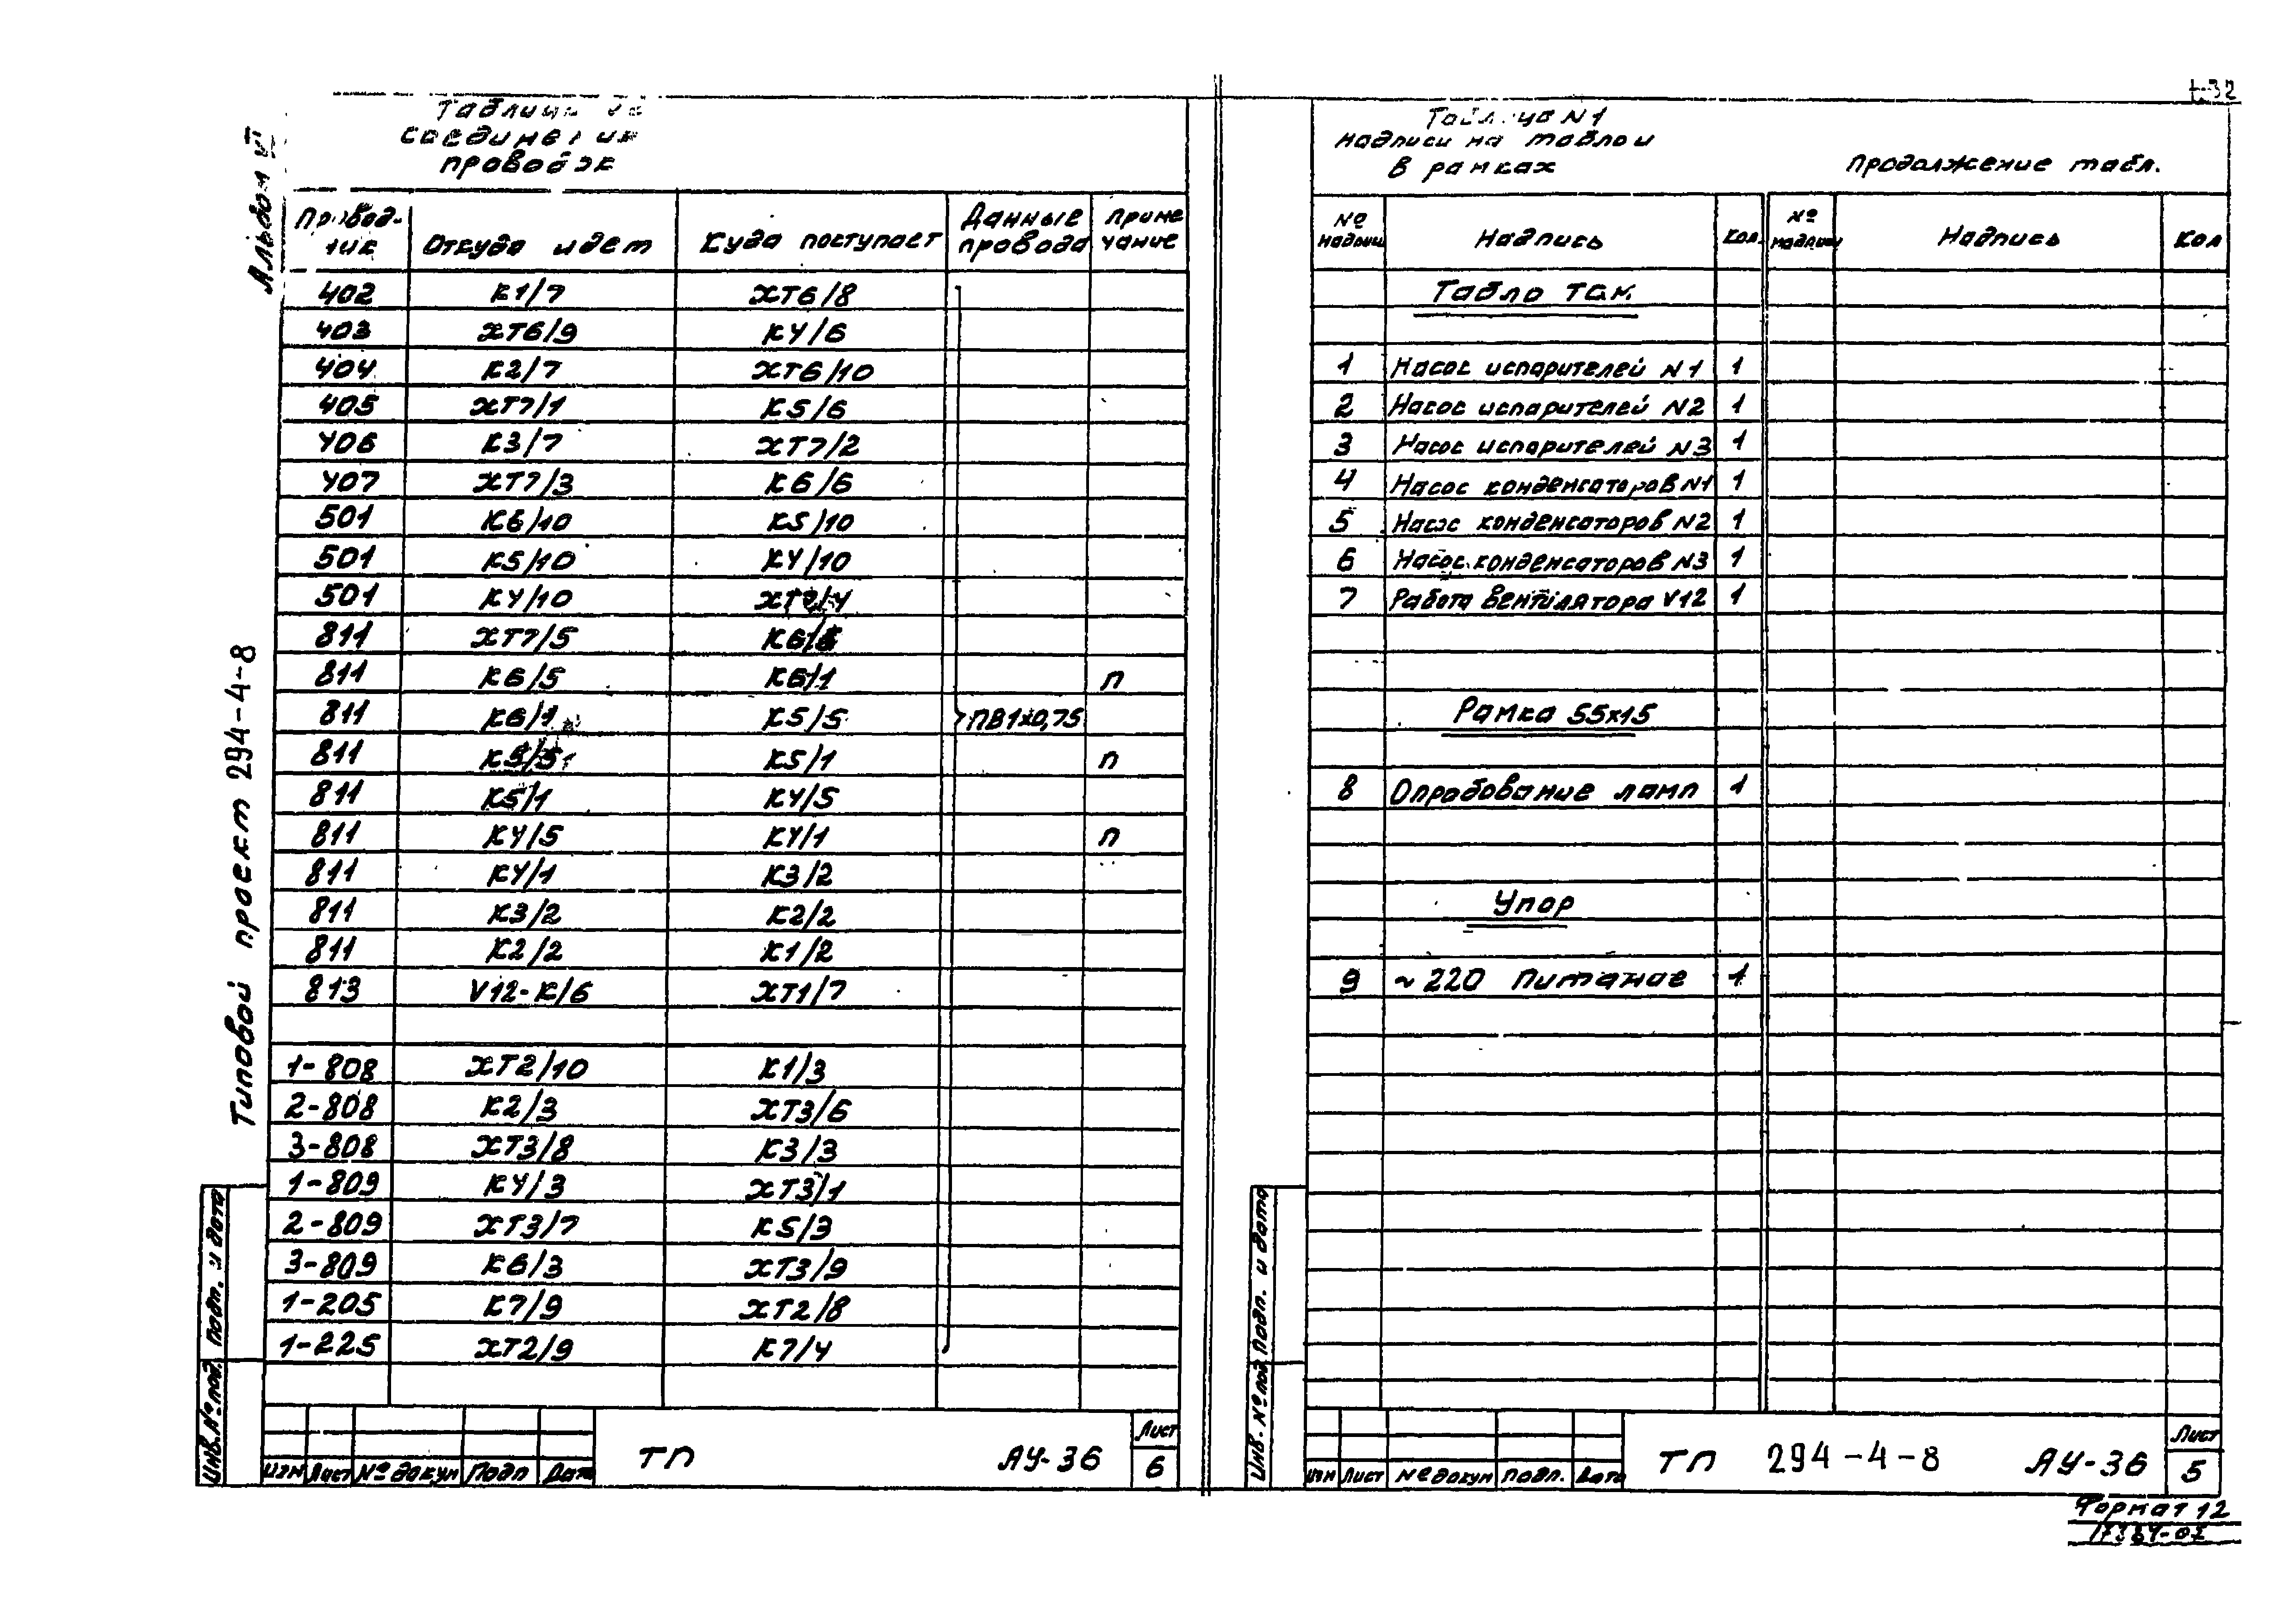 Альбом VI
Типовой проект 294-4-8
Таблица
соединения
проводок
Провод-ник Откуда идет Куда поступает Данные провода Примечание
402 К1/7 ХТ6/8
403 ХТ6/9 К4/6
404 К2/7 ХТ6/10
405 ХТ7/1 К5/6
406 К3/7 ХТ7/2
407 ХТ7/3 К6/6
501 К6/10 К5/10
501 К5/10 К4/10
501 К4/10 ХТ7/4
811 ХТ7/5 К6/5
811 К6/5 К6/1 п
811 К6/1 К5/5 ПВ1х0,75
811 К5/5 К5/1 п
811 К5/1 К4/5
811 К4/5 К4/1 п
811 К4/1 К3/2
811 К3/2 К2/2
811 К2/2 К1/2
813 V12-К/6 ХТ1/7
1-808 ХТ2/10 К1/3
2-808 К2/3 ХТ3/6
3-808 ХТ3/8 К3/3
1-809 К4/3 ХТ3/1
2-809 ХТ3/7 К5/3
3-809 К6/3 ХТ3/9
1-205 К7/9 ХТ2/8
1-225 ХТ2/9 К7/4
Инв. № подл. Подп. и дата
Изм Лист № докум Подп Дата
ТП АУ-36
Лист
6
Таблица N1
надписи на табло и
в рамках
Продолжение табл.
№ надписи Надпись Кол. № надписи Надпись Кол
Табло ТСМ
1 Насос испарителей N1 1
2 Насос испарителей N2 1
3 Насос испарителей N3 1
4 Насос конденсаторов N1 1
5 Насос конденсаторов N2 1
6 Насос конденсаторов N3 1
7 Работа вентилятора V12 1
Рамка 55х15
8 Опробование ламп 1
Упор
9 ~220 Питание 1
Инв. № подл Подп. и дата
Изм Лист № докум Подп. Дата
ТП 294-4-8 АУ-36
Лист
5
Формат 12